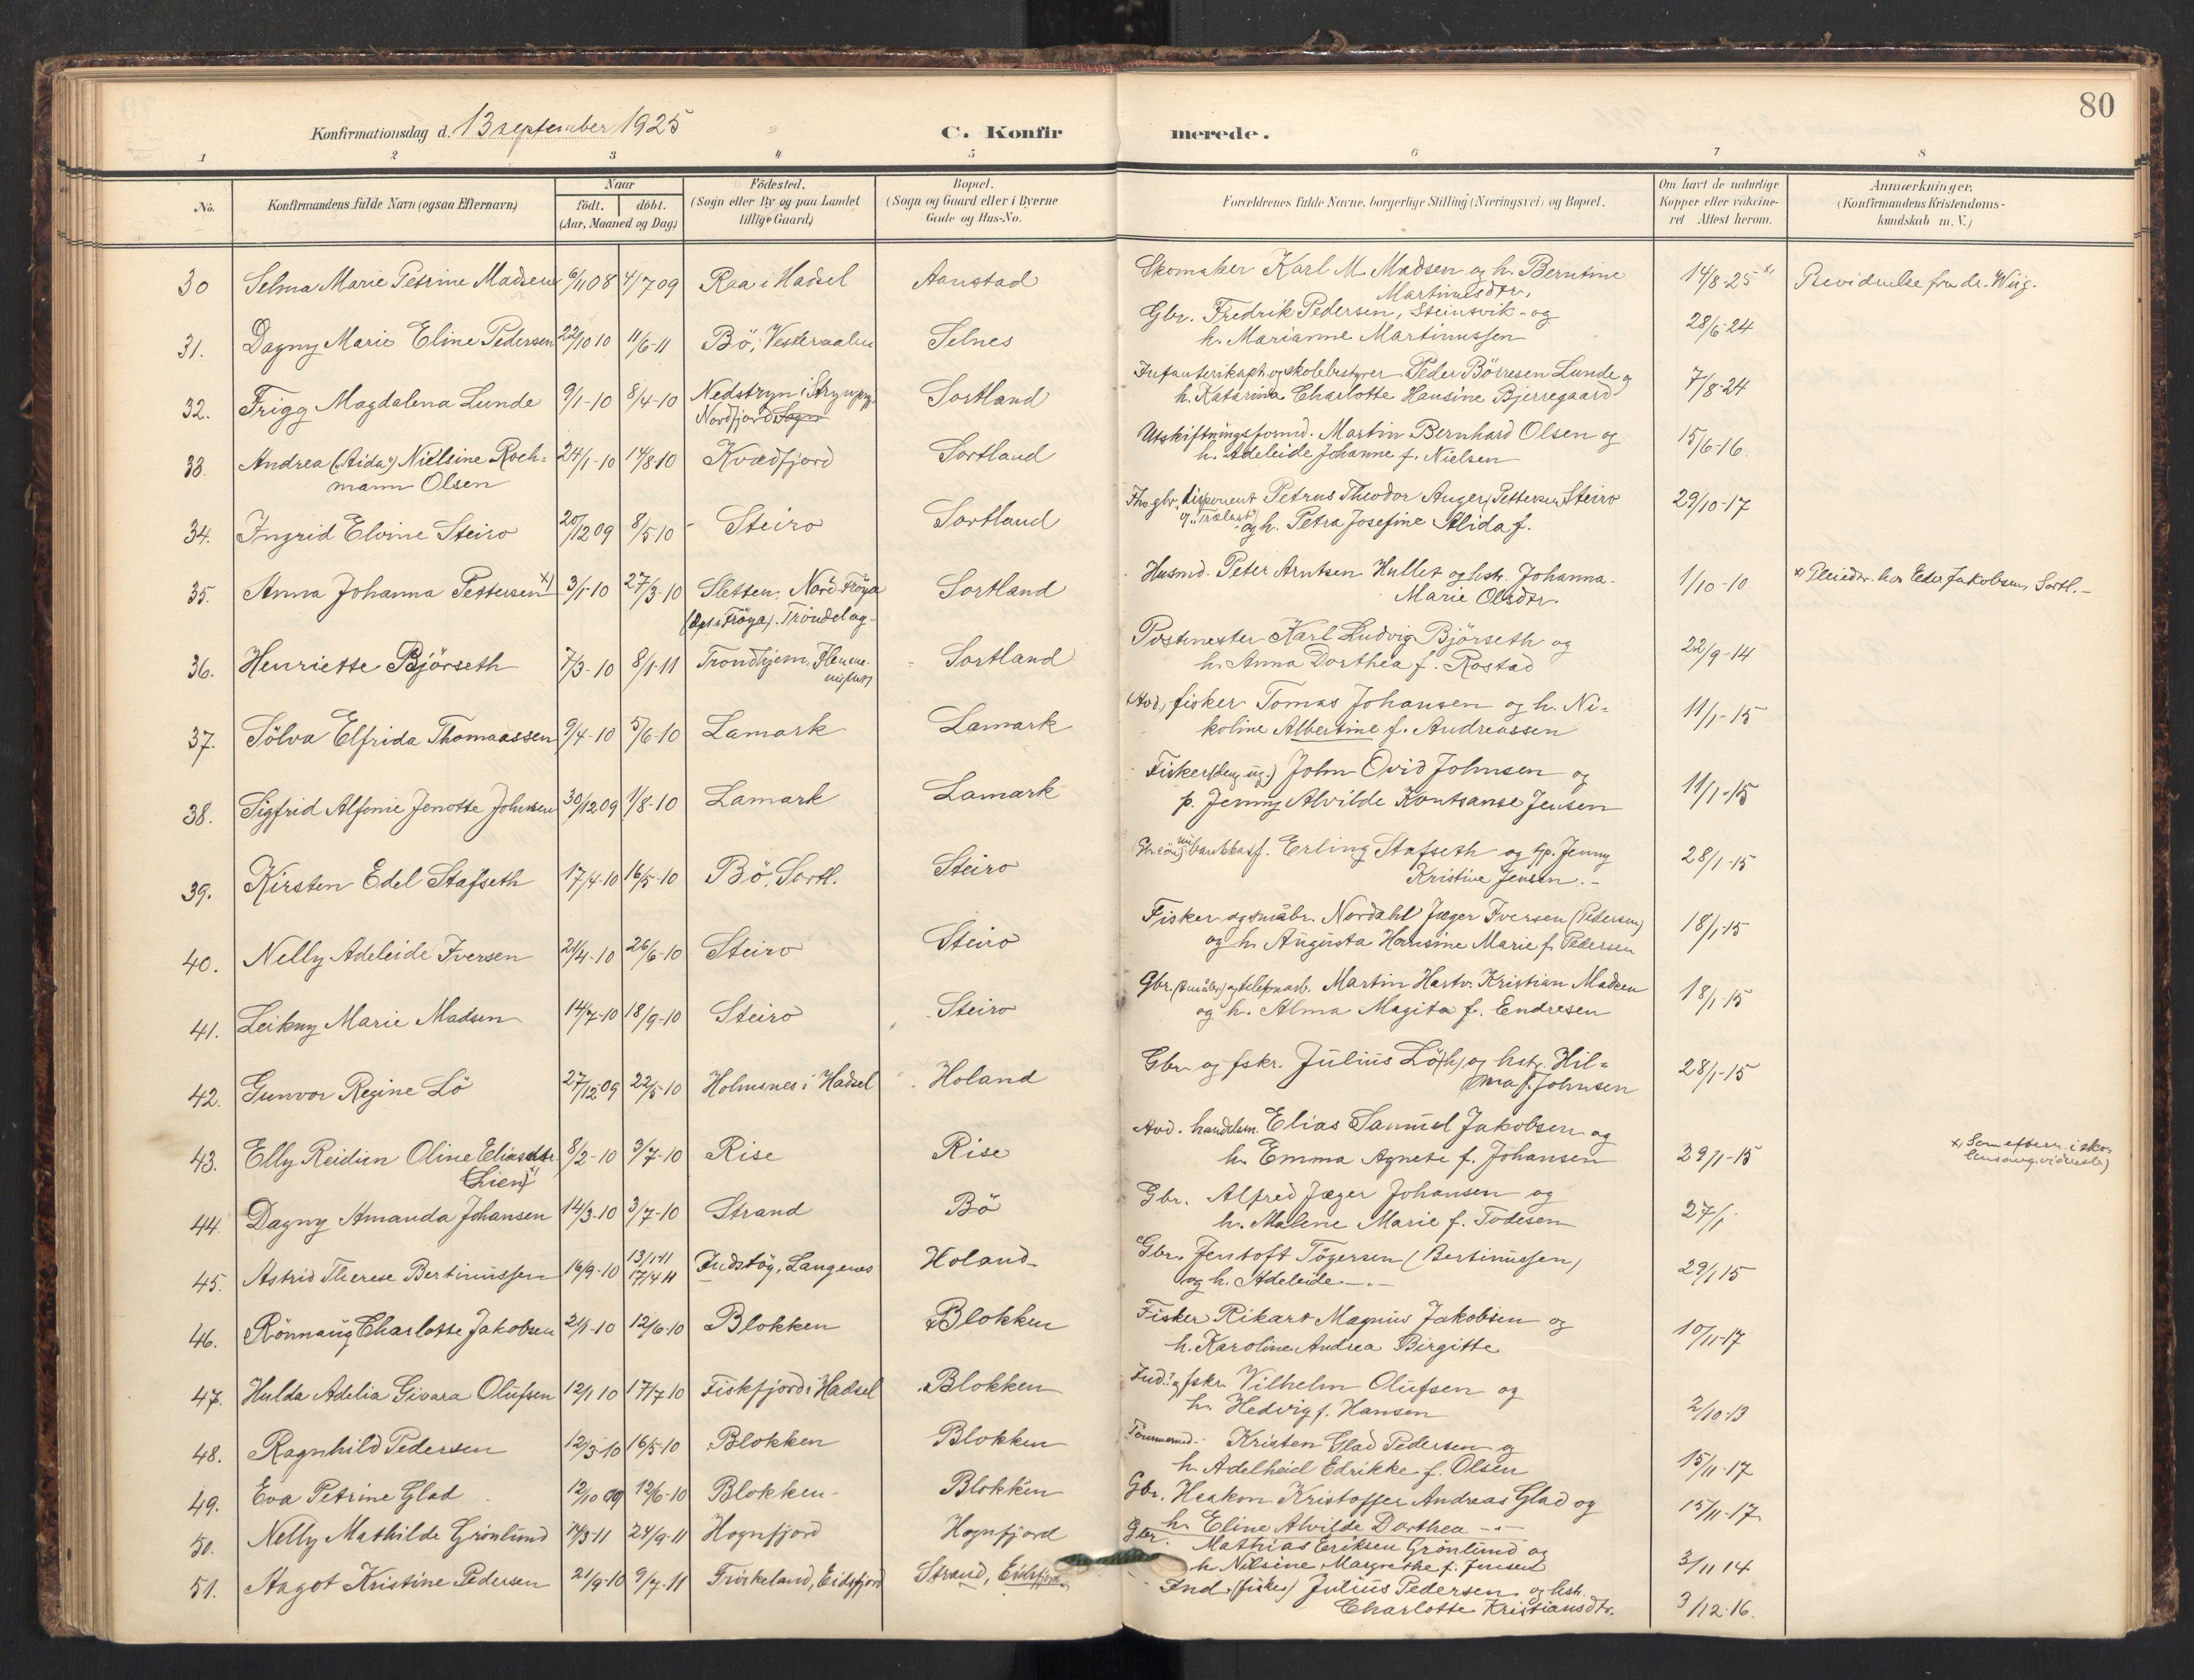 80
Konfirmationsdag d. 13 september 1925
C. Konfirmerede.
1 2 3 4 5 6 7 8
No.
Konfirmandens fulde Navn (ogsaa Efternavn)
Naar
födt. döbt.
(Aar, Maaned og Dag)
Födested.
(Sogn eller By og paa Landet
tillige Gaard)
Bopæl.
(Sogn og Gaard eller i Byerne
Gade og Hus-No.
Forældrenes fulde Navne, borgerlige Stilling (Næringsvei) og Bopæl.
Om havt de naturlige
Kopper eller vakcine-
ret Attest herom.
Anmærkninger.
(Konfirmandens Kristendoms-
kundskab m. V.)
30 Selma Marie Petrine Madsen 6/11 08 4/7 09 Raa i Hadsel Aanstad Skomaker Karl M. Madsen og h. Berntine
Martinusdtr. 14/8-25 x) Bevidnelse fra dr. Wiig.
31. Dagny Marie Eline Pedersen 22/10 10 11/6-11 Bö, Vesteraalen Selnes Gbr. Fredrik Pedersen, Steinsvik - og
h. Marianne Martinussen 28/6-24
32. Frigg Magdalena Lunde 9/1-10 8/4-10 Nedstryn i Stryn
Nordfjord Sogn Sortland Infanterikapt. og skolebestyrer Peder Börresen Lunde og
h. Katarina Charlotte Hansine Bjerregaard 7/8-24
33. Andrea ("Aida") Nielsine Roch=
mann Olsen 24/1-10 14/8-10 Kvædfjord Sortland Utskiftningsformd. Martin Bernhard Olsen og
h. Adeleide Johanne f. Nielsen 15/6-16
34. Ingrid Elvine Steiro 20/12 09 8/5-10 Steiro Sortland disponent Petrus Theodor Auger Pettersen Steiro
og h. Petra Josefine Alida f. 29/10-17
35. Anna Johanna Pettersen x) 3/1-10 27/3-10 Sletten, Nord-Fröya
Fröya). Tröndelag- Sortland Husmd. Peter Arntsen Hullet og hstr. Johanna-
Marie Olsdtr. 1/10-10 x) Pleiedtr. hos Jakobsen, Sortl.-
36. Henriette Björseth 7/3-10 8/1-11 Trondhjem, Sortland Postmester Karl Ludvig Björseth og
h. Anna Dorthea f. Rostad 22/9-14
37. Sölva Elfrida Thomassen 9/4-10 5/6-10 Lamark Lamark (Avd.) fisker Tomas Johansen og h. Ni=
koline Albertine f. Andreassen 11/1-15
38. Sigfrid Alfonie Jenotte Johnsen 30/12 09 1/8-10 Lamark Lamark Fisker (den ug.) John Ovid Johnsen og
p. Jenny Alvilde Kontsanse Jensen 11/1-15
39. Kirsten Edel Stafseth 17/4-10 16/5-10 Bö, Sortl. Steiro nu bankkasf. Erling Stafseth og gp. Jenny
Kristine Jensen.- 28/1-15
40. Nelly Adeleide Iversen 21/4-10 26/6-10 Steiro Steiro Fisker og småbr. Nordahl Jæger Iversen (Pedersen)
og h. Augusta Hansine Marie f. Pedersen 18/1-15
41. Leikny Marie Madsen 14/7-10 18/9-10 Steiro Steiro Gbr. (småbr) og telefonarb. Martin Hartv. Kristian Madsen
og h. Alma Magita f. Endresen 18/1-15
42. Gunvor Regine Lö 27/12 09 22/5-10 Holmsnes i Hadsel Holand Gbr. og fskr. Julius Lö(h) og hstr. Hil=
ma f. Johnsen 28/1-15
43. Elly Reidun Oline Eliasdtr.
(Lien) x) 8/2-10 3/7-10 Rise Rise Avd. handelsm. Elias Samuel Jakobsen og
h. Emma Agnete f. Johansen 29/1-15 x) Som eftern. i sko-
44. Dagny Amanda Johansen 14/3-10 3/7-10 Strand Bö Gbr. Alfred Jæger Johansen og
h. Malene Marie f. Todesen 27/1-
45. Astrid Therese Bertinussen 16/9-10 13/1-11
17/4 11 Indstöy, Langenes Holand Gbr. Jentoft Tögersen (Bertinussen)
og h. Adeleide - . - 29/1 15
46. Rönnaug Charlotte Jakobsen 21/1-10 12/6-10 Blokken Blokken Fisker Rikart Magnus Jakobsen og
h. Karoline Andrea Birgitte 10/11-17
47. Hulda Adelia Givara Olufsen 12/1 10 17/7-10 Fiskfjord i Hadsel Blokken Ind. og fskr. Vilhelm Olufsen og
h. Hedvig f. Hansen 2/10-13
48. Ragnhild Pedersen 12/3-10 16/5-10 Blokken Blokken Tömmermd. Kristen Glad Pedersen og
h. Adelheid Edrikke f. Olsen 15/11-17
49. Eva Petrine Glad 12/10 09 12/6-10 Blokken- Blokken Gbr. Heakon Kristoffer Andreas Glad og
h. Eline Alvilde Dorthea - - 15/11-17
50. Nelly Mathilde Grönlund 14/3-11 24/9-11 Hognfjord Hognfjord Gbr. Mathias Eriksen Grönlund og
h. Nilsine Margrethe f. Jensen 3/11 14
51. Aagot Kristine Pedersen 21/9-10 9/7-11 Frökeland, Eidsfjord Strand, Eidsfjord Ind. (fisker) Julius Pedersen og hstr.
Charlotte Kristiansdtr. 3/12-16.